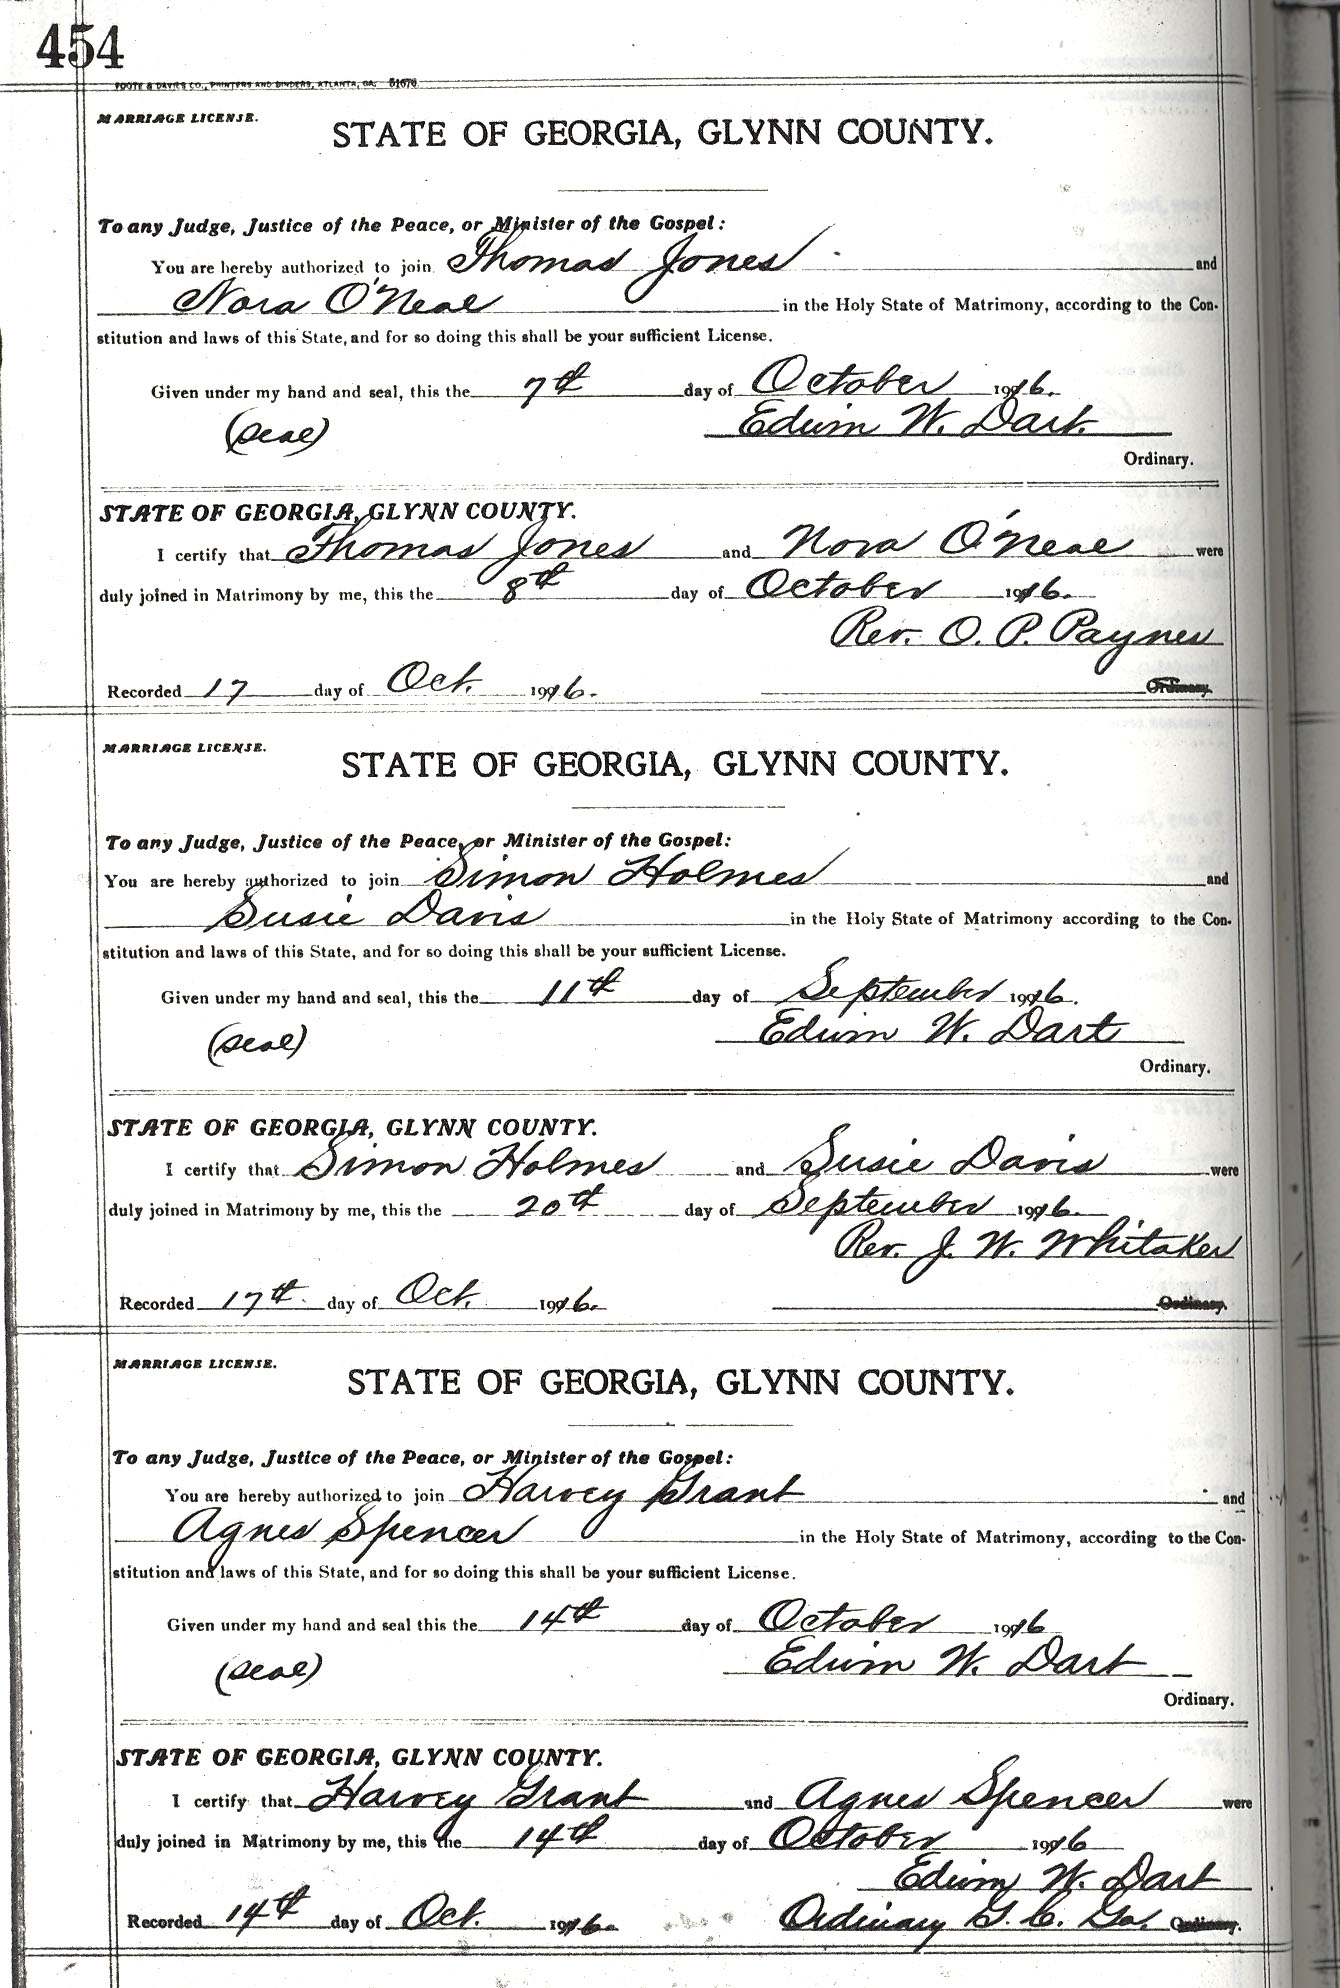 454
FOOTE & DAVIES CO., PRINTERS AND BINDERS, ATLANTA, GA. 51676
MARRIAGE LICENSE.
STATE OF GEORGIA, GLYNN COUNTY.
To any Judge, Justice of the Peace, or Minister of the Gospel:
You are hereby authorized to join Thomas Jones and
Nora O'Neal in the Holy State of Matrimony, according to the Con-
stitution and laws of this State, and for so doing this shall be your sufficient License.
Given under my hand and seal, this the 7th day of October 1916.
(Seal) Edwin W. Dart.
Ordinary.
STATE OF GEORGIA, GLYNN COUNTY.
I certify that Thomas Jones and Nora O'Neal were
duly joined in Matrimony by me, this the 8th day of October 1916.
Rev. O. P. Paynes
Recorded 17 day of Oct. 1916. Ordinary.
MARRIAGE LICENSE.
STATE OF GEORGIA, GLYNN COUNTY.
To any Judge, Justice of the Peace, or Minister of the Gospel:
You are hereby authorized to join Simon Holmes and
Susie Davis in the Holy State of Matrimony according to the Con-
stitution and laws of this State, and for so doing this shall be your sufficient License.
Given under my hand and seal, this the 11th day of September 1916.
(Seal) Edwin W. Dart
Ordinary.
STATE OF GEORGIA, GLYNN COUNTY.
I certify that Simon Holmes and Susie Davis were
duly joined in Matrimony by me, this the 20th day of September 1916.
Rev. J. W. Whitaker
Recorded 17th day of Oct. 1916. Ordinary.
MARRIAGE LICENSE.
STATE OF GEORGIA, GLYNN COUNTY.
To any Judge, Justice of the Peace, or Minister of the Gospel:
You are hereby authorized to join Harvey Grant and
Agnes Spencer in the Holy State of Matrimony, according to the Con-
stitution and laws of this State, and for so doing this shall be your sufficient License.
Given under my hand and seal this the 14th day of October 1916
(Seal) Edwin W. Dart
Ordinary.
STATE OF GEORGIA, GLYNN COUNTY.
I certify that Harvey Grant and Agnes Spencer were
duly joined in Matrimony by me, this the 14th day of October 1916
Edwin W. Dart
Recorded 14th day of Oct. 1916. Ordinary G. C. Ga. Ordinary.